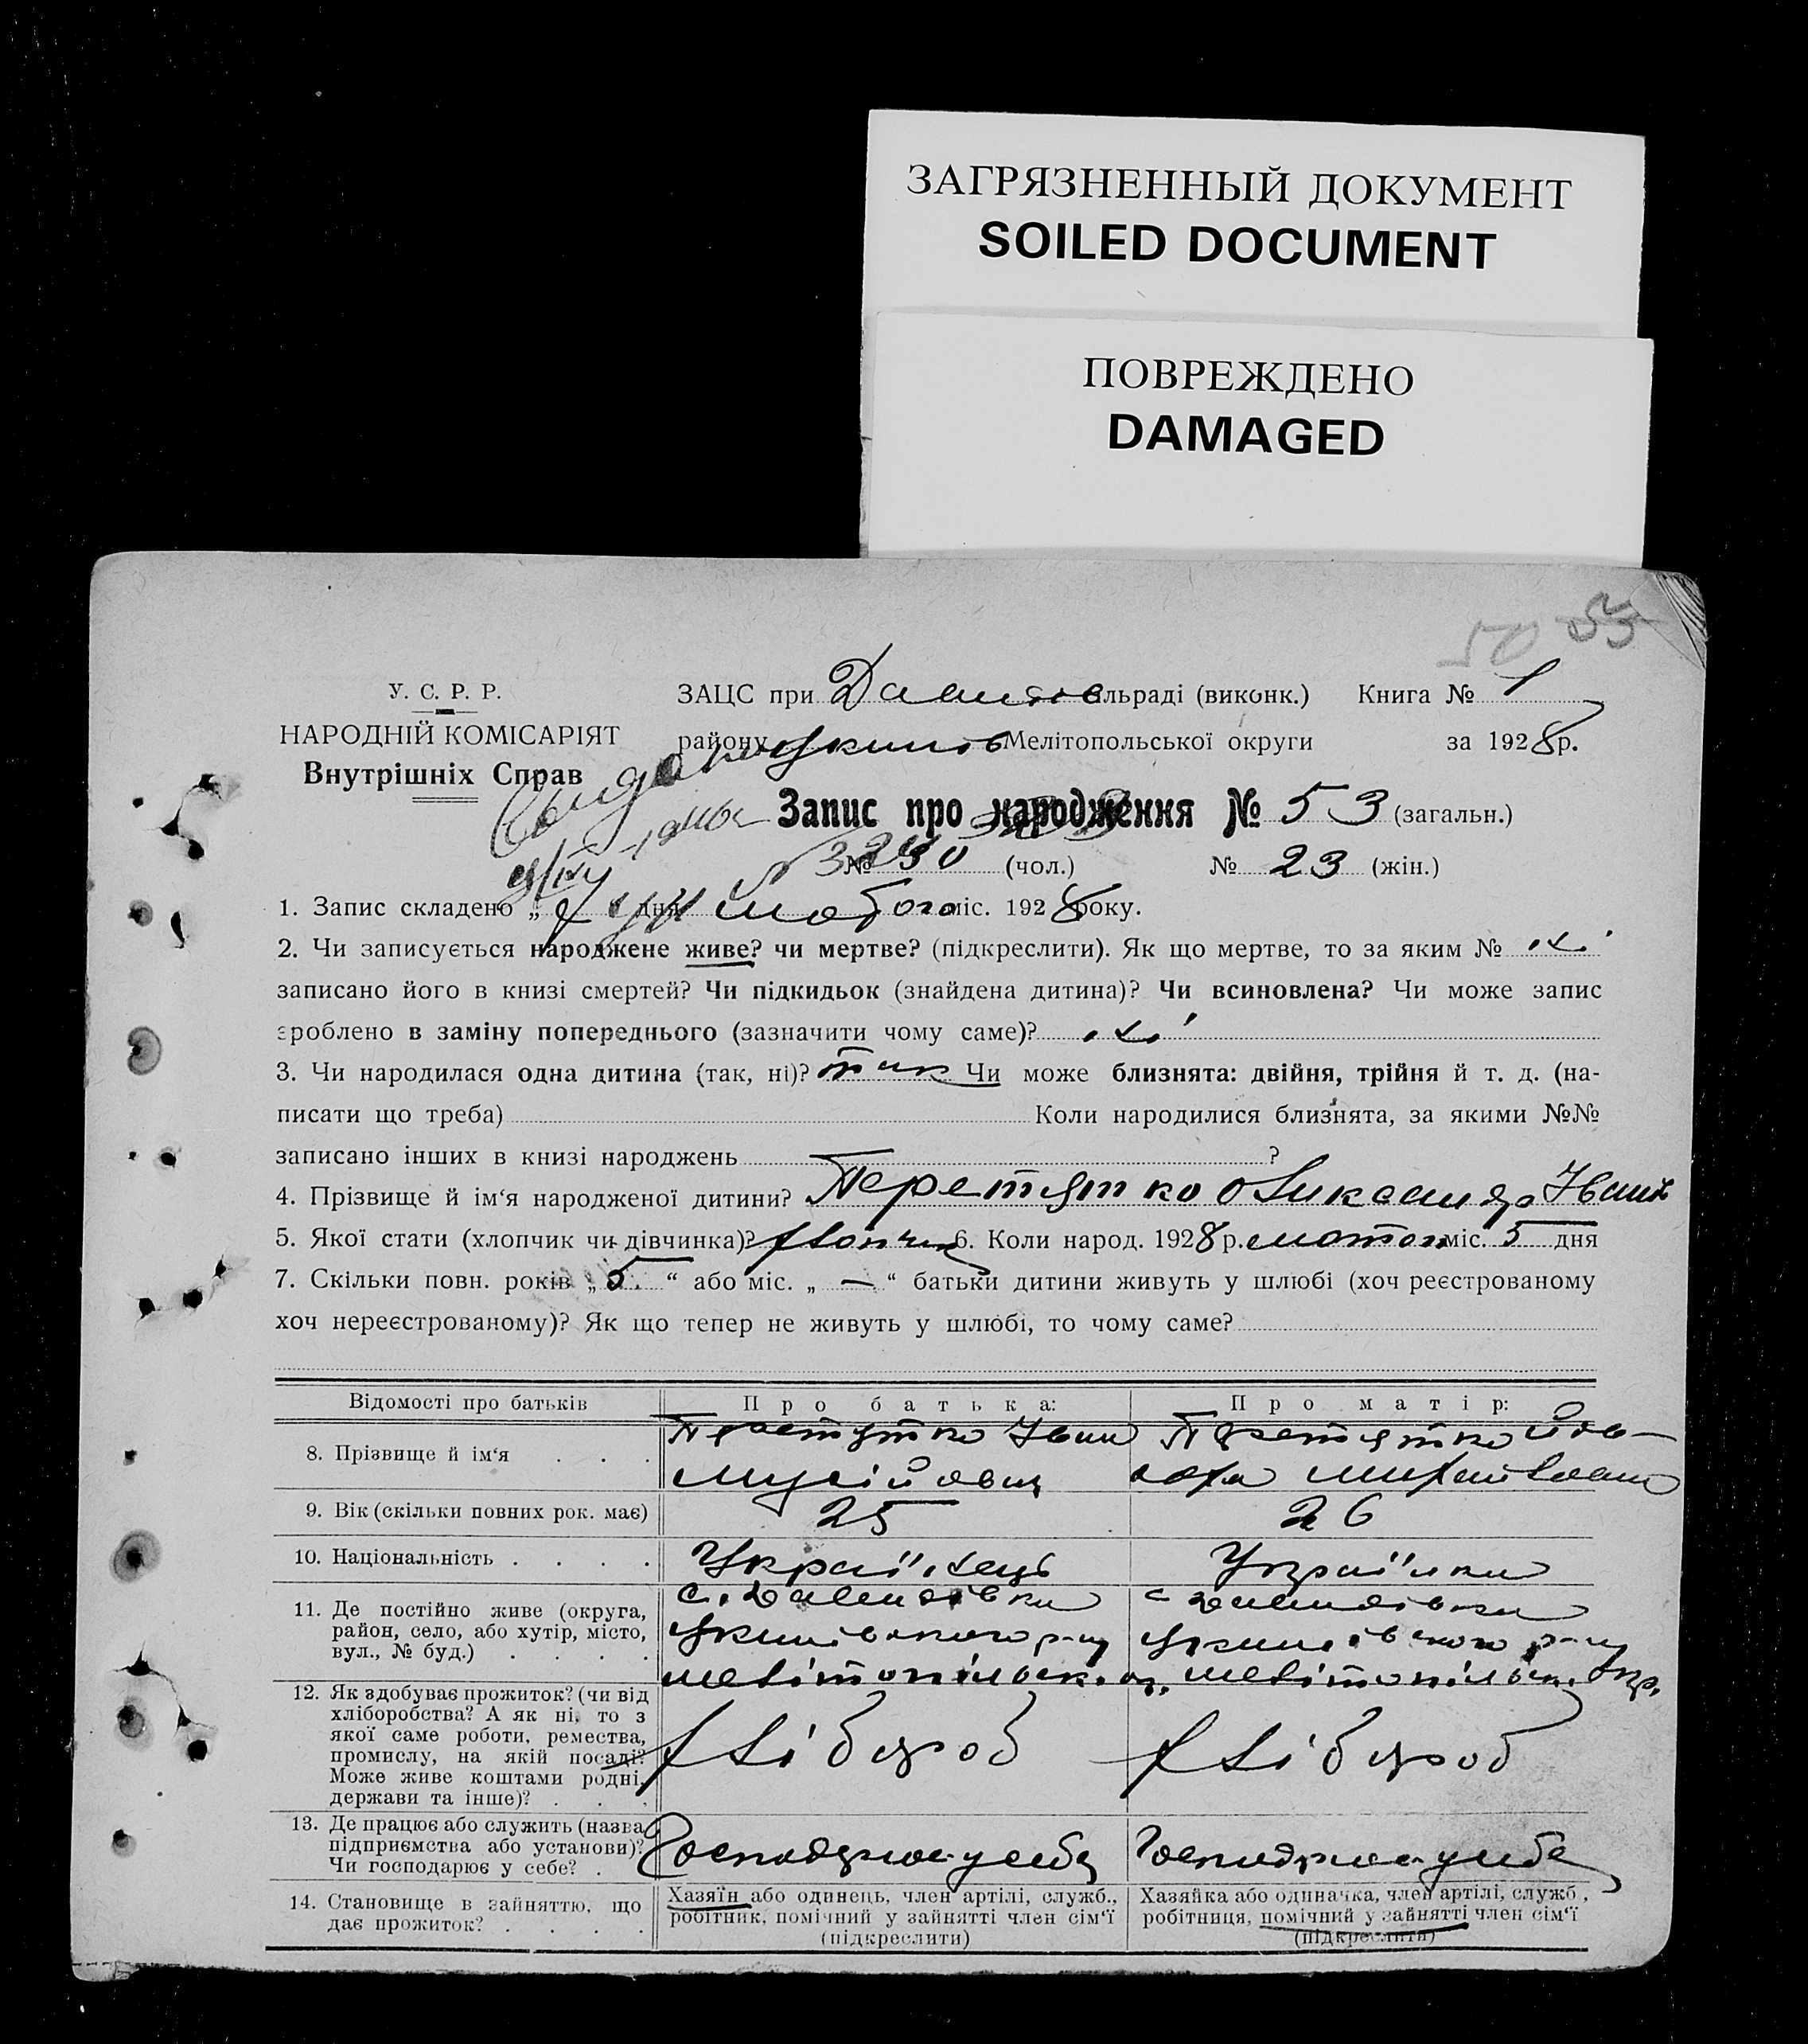 ЗАГРЯЗНЕННЫЙ ДОКУМЕНТ
SOILED DOCUMENT
ПОВРЕЖДЕНО
DAMAGED
50 55
У. С. Р. Р.
НАРОДНІЙ КОМІСАРІЯТ
Внутрішніх Справ
ЗАЦС при сільраді (виконк.) Книга № 1
району Мелітопольської округи за 1928 р.
Запис про народження № 53 (загальн.)
№ 30 (чол.) № 23 (жін.)
1. Запис складено „ дня міс. 1928 року.
2. Чи записується народжене живе? чи мертве? (підкреслити). Як що мертве, то за яким №
записано його в книзі смертей? Чи підкидьок (знайдена дитина)? Чи всиновлена? Чи може запис
зроблено в заміну попереднього (зазначити чому саме)?
3. Чи народилася одна дитина (так, ні)? так Чи може близнята: двійня, трійня й т. д. (на-
писати що треба) Коли народилися близнята, за якими №№
записано інших в книзі народжень ?
4. Прізвище й ім‘я народженої дитини? Перетятко Олександр Іван
5. Якої стати (хлопчик чи дівчинка)? хлопчик 6. Коли народ. 1928 р. лютого міс. 5 дня
7. Скільки повн. років „ 5. “ або міс. „ — “ батьки дитини живуть у шлюбі (хоч реєстрованому
хоч нереєстрованому)? Як що тепер не живуть у шлюбі, то чому саме?
Відомості про батьків Про батька: Про матір:
8. Прізвище й ім‘я . . . Перетятко Іван Мусійович Перетятко Михайловна
9. Вік (скільки повних рок. має) 25 26
10. Національність . . . . Украйінець Украйінка
11. Де постійно живе (округа,
район, село, або хутір, місто,
вул., № буд.) . . . .
12. Як здобуває прожиток? (чи від
хліборобства? А як ні, то з
якої саме роботи, ремества,
промислу, на якій посаді?
Може живе коштами родні,
держави та інше)? . . .
хлібороб хлібороб
13. Де працює або служить (назва
підприємства або установи)?
Чи господарює у себе? .
Господарює у себе Господарює у себе
14. Становище в зайняттю, що
дає прожиток? . . . .
Хазяїн або одинець, член артілі, служб.,
робітник, помічний у зайнятті член сім‘ї
(підкреслити)
Хазяйка або одиначка, член артілі, служб ,
робітниця, помічний у зайнятті член сім‘ї
(підкреслити)